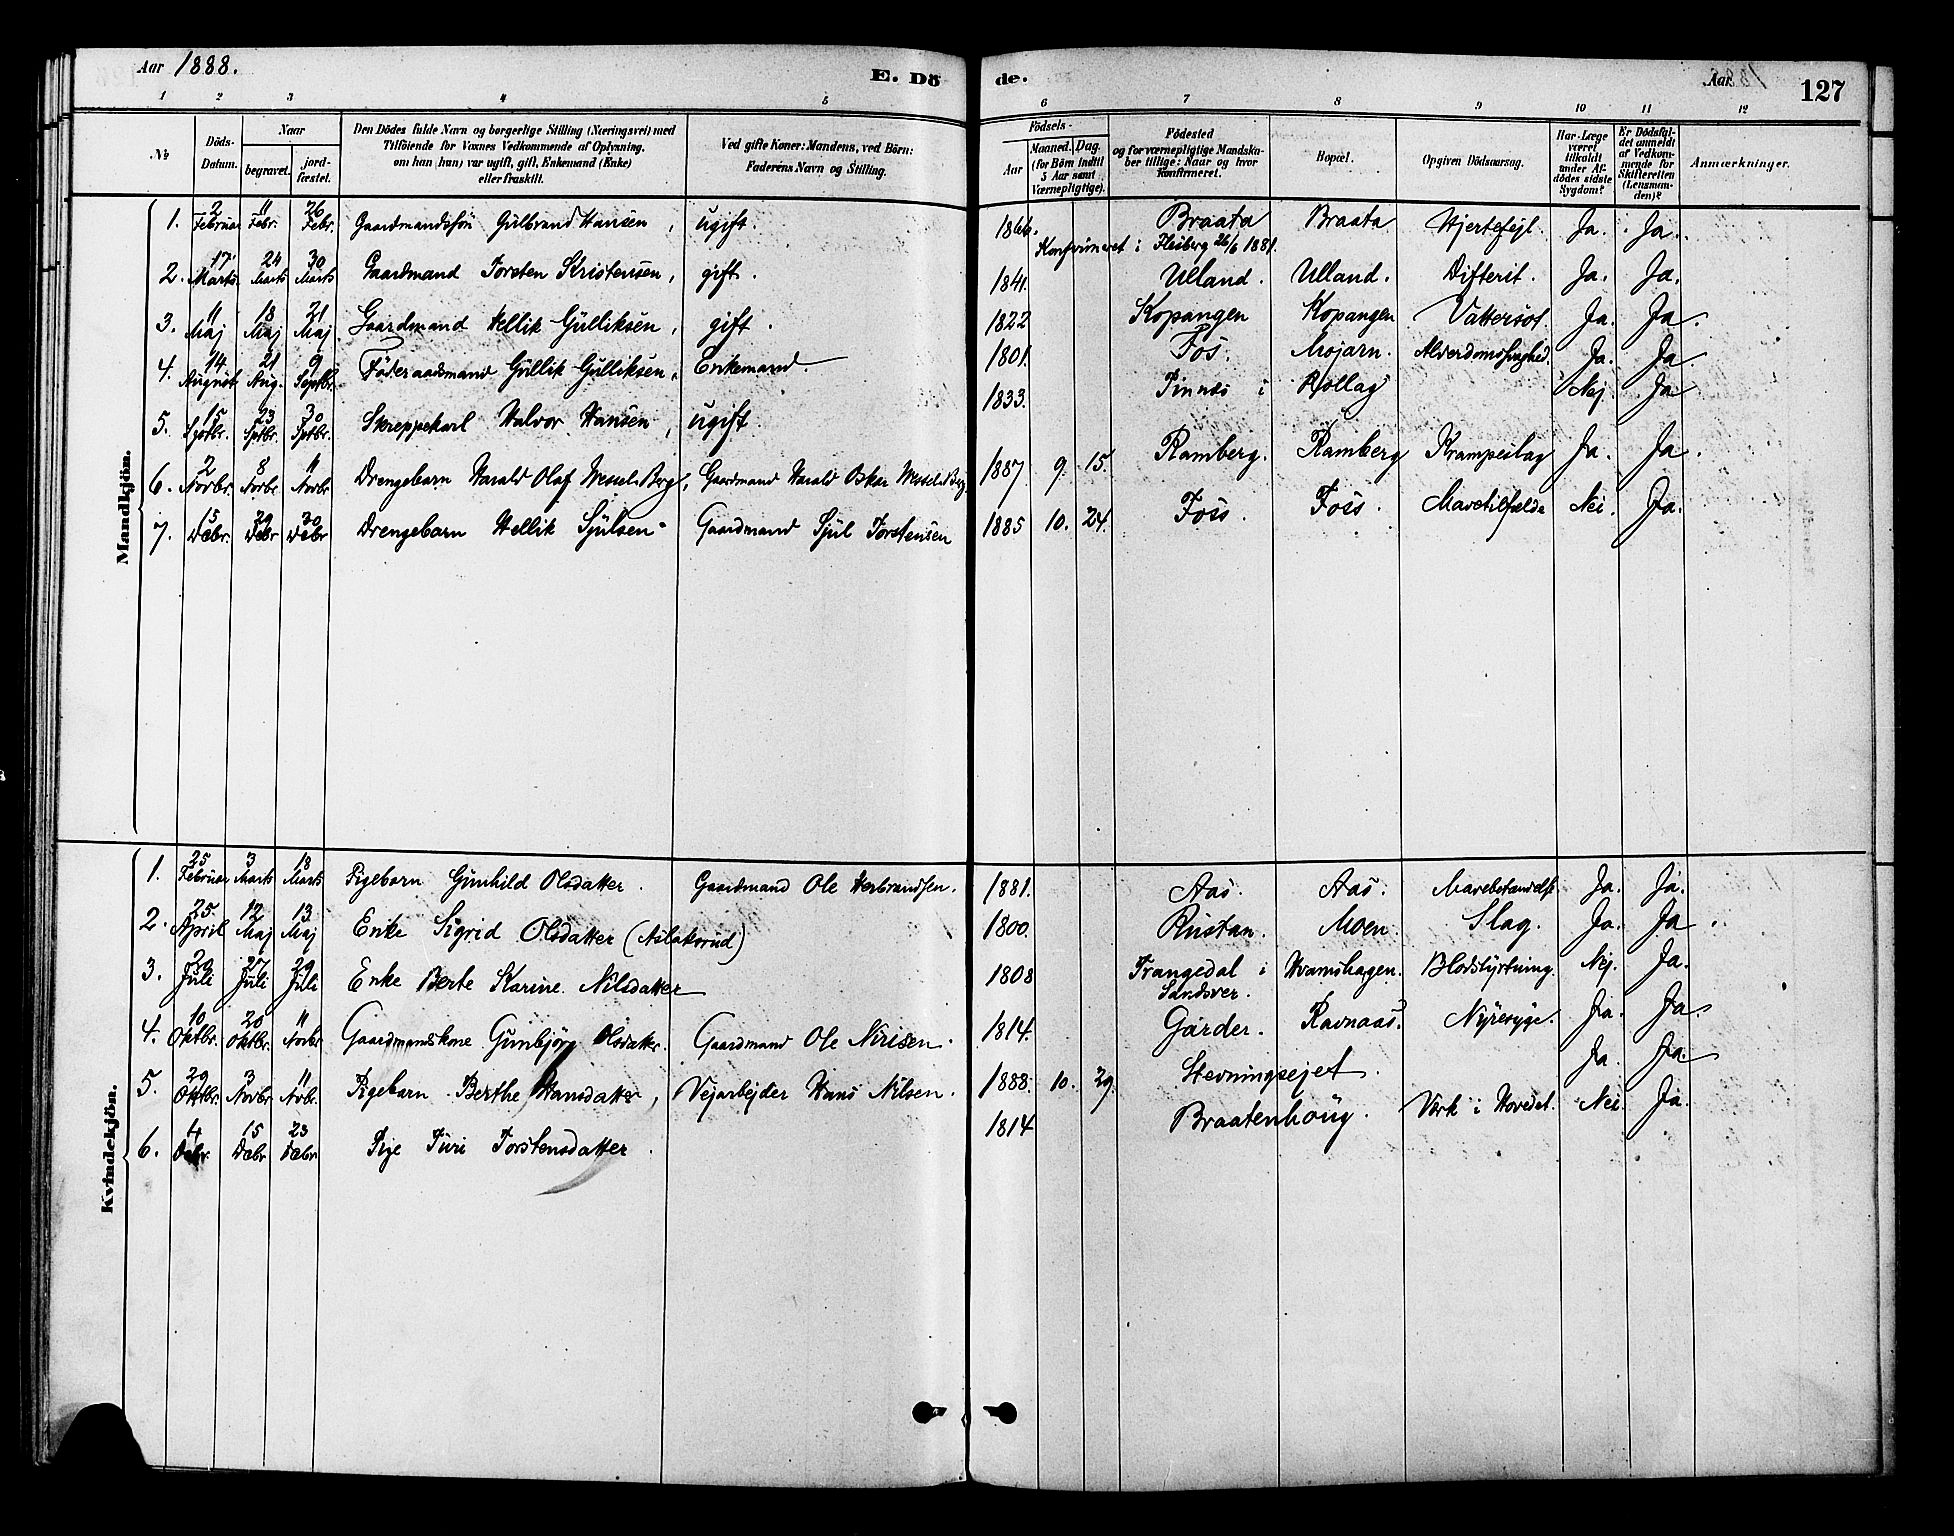 Aar 1888.
E. Dö
de.
Aar
127
1 2 3 4 5 6 7 8 9 10 11 12
№
Döds-Datum.
Naar
begravet.
jord-fæstet.
Den Dödes fulde Navn og borgerlige Stilling (Næringsvei) med
Tilföiende for Voxnes Vedkommende af Oplysning,
om han (hun) var ugift, gift, Enkemand (Enke)
eller fraskilt.
Ved gifte Koner: Mandens, ved Börn:
Faderens Navn og Stilling.
Födsels-
Aar
Maaned. Dag.
(for Börn indtil
5 Aar samt
Værnepligtige).
Födested
og for værnepligtige Mandska-
ber tillige: Naar og hvor
Konfirmeret.
Bopæl.
Opgiven Dödsaarsag.
Har Læge
været
tilkaldt
under Af-
dödes sidste
Sygdom?
Er Dödsfal-
det anmeldt
af Vedkom-
mende for
Skifteretten
(Lensman-
den)?
Anmærkninger.
Mandkjön.
1. 2 Februar 11 Febr. 26 Febr. Gaardmandssön Gulbrand Hansen, ugift. 1866. Braata Braata Hjertefejl. Ja. Ja.
Konfirmeret i Flesberg 26/6 1881.
2. 17 Marts. 24 Marts 30 Marts Gaardmand Torsten Kristensen, gift. 1841. Ulland. Ulland. Difterit. Ja. Ja.
3. 11 Maj 18 Maj 21 Maj Gaardmand Hellik Gulliksen, gift. 1822 Kopangen Kopangen Vattersot. Ja. Ja.
4. 14 August 21 Aug. 9 Septbr. Föderaadsmand Gullik Gulliksen, Enkemand. 1801. Fos. Mojarn. Alderdomssvaghed. Ja. Ja
5. 15 Sptbr. 23 Sptbr. 30 Sptbr. Skreppekarl Halvor Hansen, ugift. 1833. Tinnes i Rollag Nej. Ja
6. 2 Novbr. 8 Novbr. 11 Novbr Drengebarn Harald Olaf Wessel-Berg, Gaardmand Harald Oskar Wessel-Berg 1887 9. 15. Ramberg. Ramberg Krampeslag Ja. Ja.
7. 15 Decbr. 29 Debr 30 Debr Drengebarn Hellik Sjulsen. Gaardmand Sjul Torstensen 1885 10. 24. Foss. Foss. Mavetilfælde Nei. Ja.
Kvindekjön.
1. 25 Februar 3 Marts 18 Marts Pigebarn Gunhild Olsdatter. Gaardmand Ole Herbrandsen. 1881. Aas. Aas. Mavebetændelse Ja. Ja.
2. 25 April 12 Maj 13 Maj Enke Sigrid Olsdatter 1800. Rustan. Moen Slag. Ja. Ja.
3. 20 Juli 27 Juli 29 Juli Enke Berte Karine Nilsdatter 1808 Trangedal i Sandsver. Kvamshagen. Blodstyrtning. Nej. Ja.
4. 10 Oktbr. 20 Oktbr. 11 Novbr Gaardmandskone Gunbjörg Olsdatter. Gaardmand Ole Nirisen. 1814. Gärder. Ravnaas. Nyresyge. Ja. Ja.
5. 29 Oktbr. 3 Novbr 11 Novbr. Pigebarn Berthe Hansdatter, Vejarbejder Hans Nilsen. 1888. 10. 29. Stevningsejet. Ja. Ja.
6. 4 Debr. 15 Decbr 23 Decbr Pige Turi Torstensdatter. 1814 Braatenhoug. Værk i Hovedet. Nei. Ja.